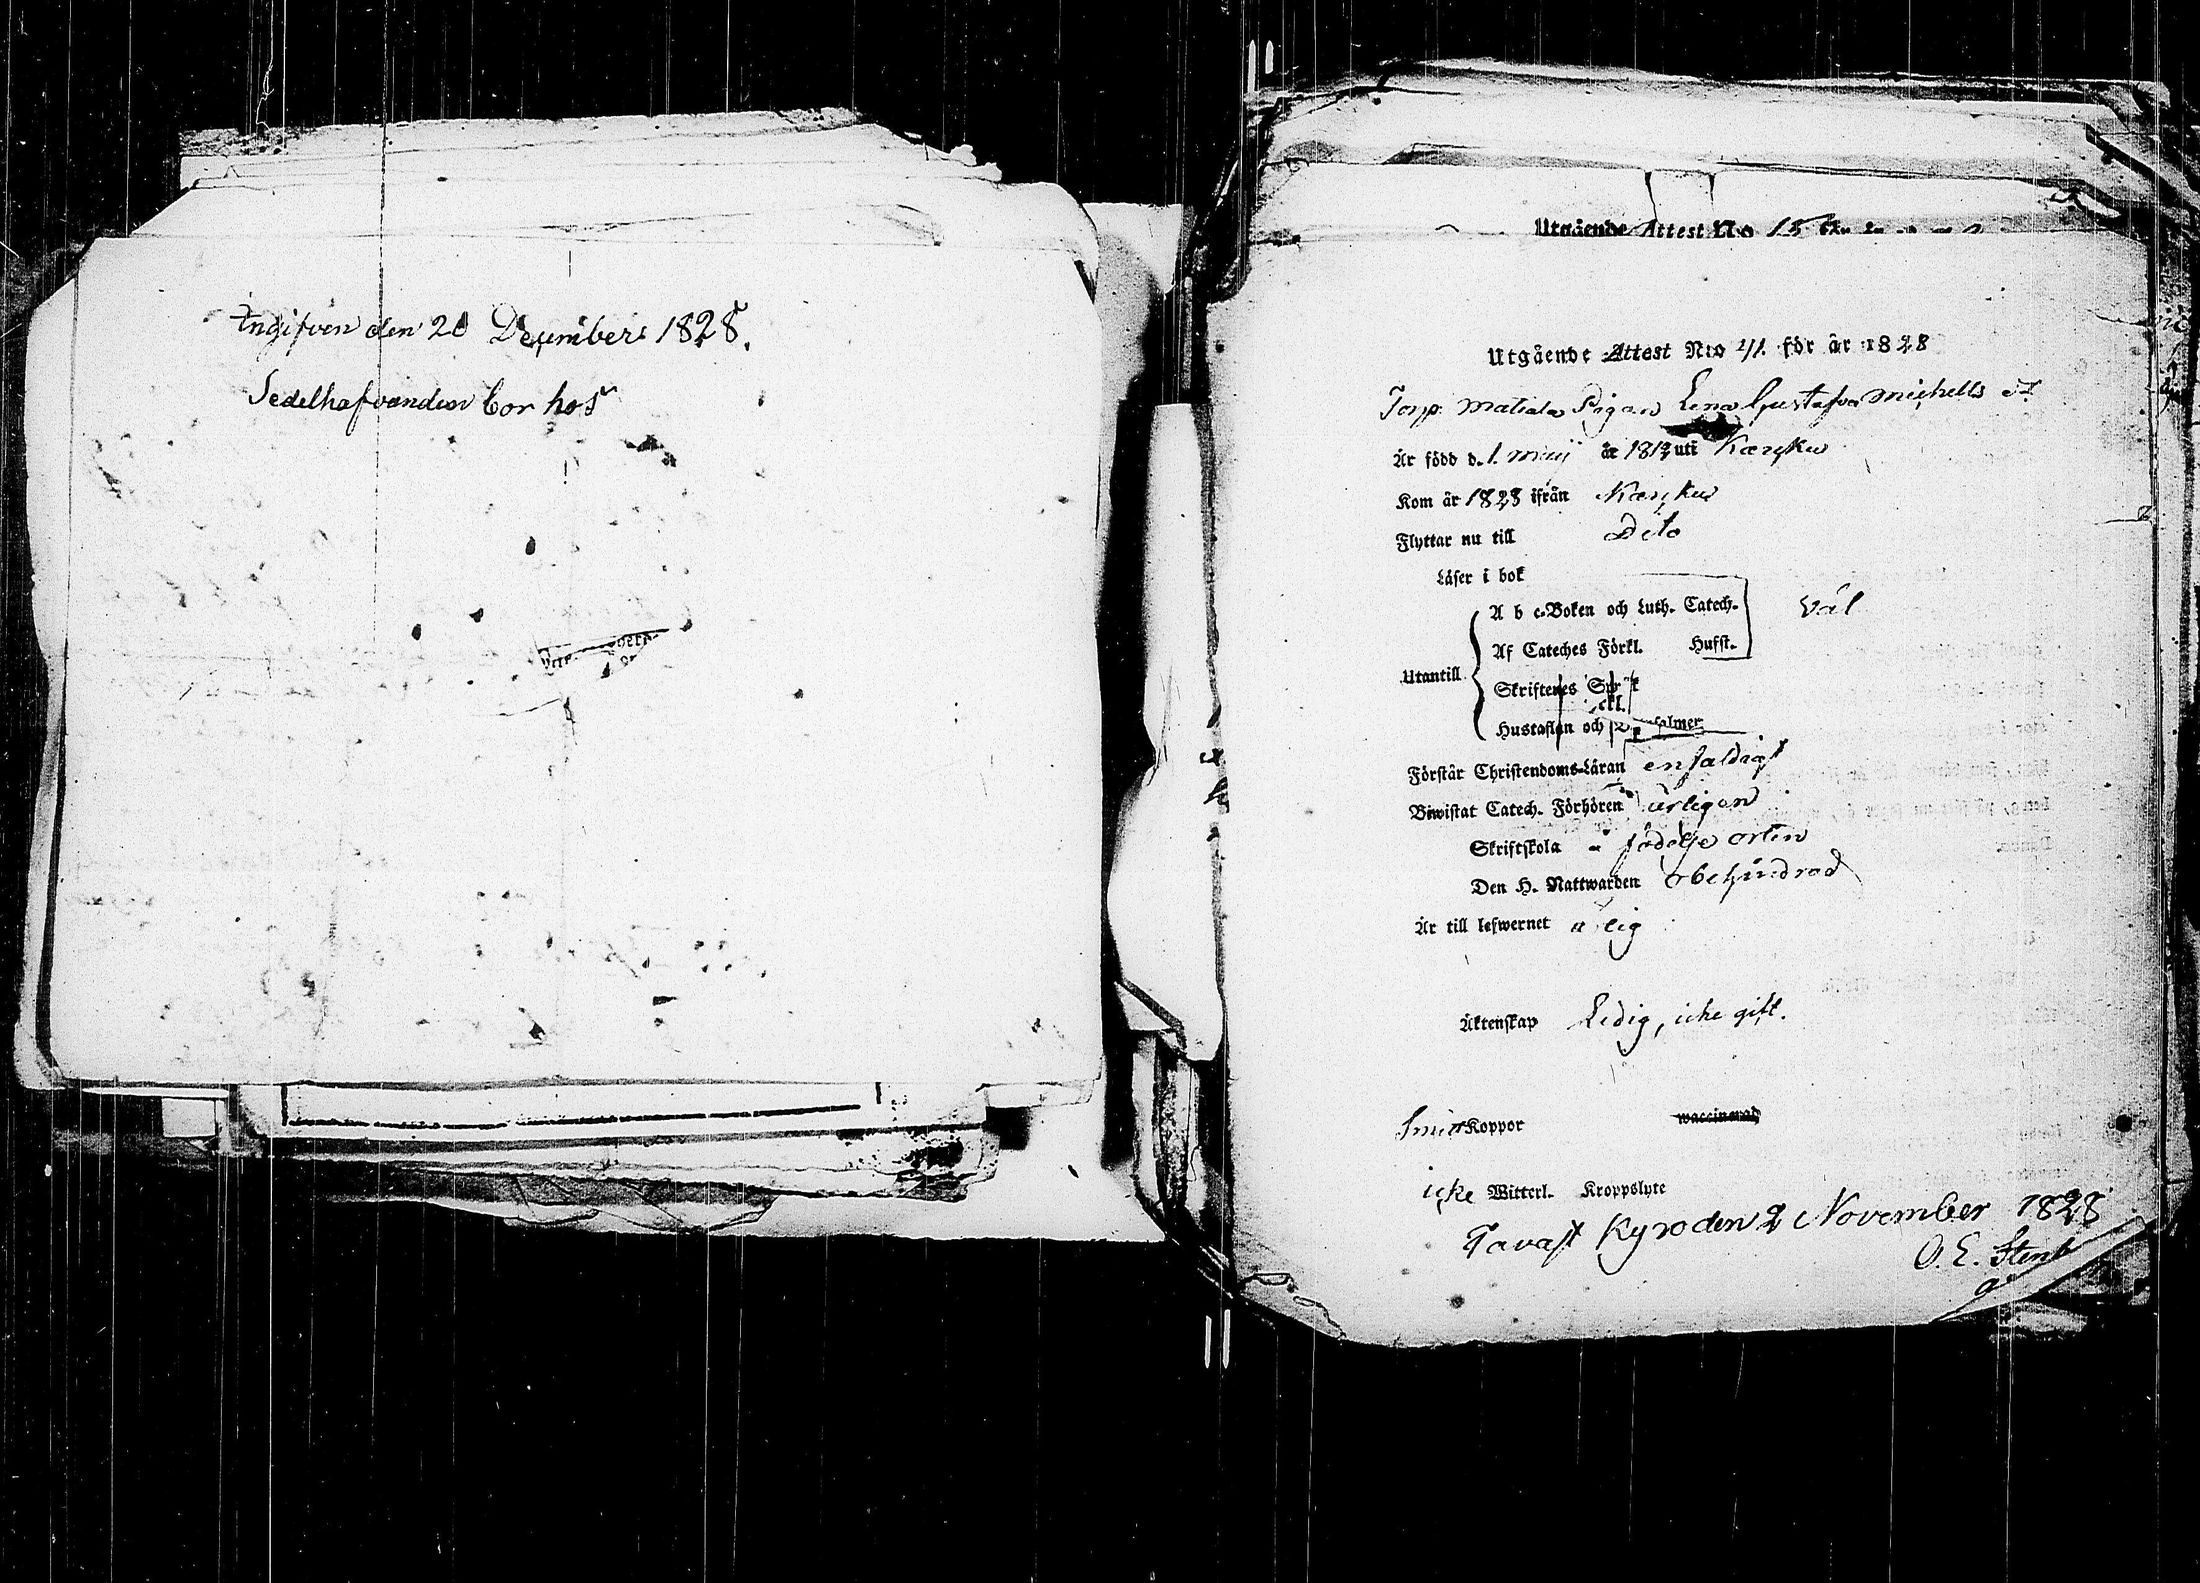 Ingifven den 20 December 1828.
Sedelhafvanden bor hos
Utgående Attest No 15 för år
Utgående Attest N:o 41. för år 1828
Torp. Matiala Pigan Lena Gustafva Michells dr
Är född d. 1. Maij år 1812 uti Karkku
Kom år 1828 ifrån Karkku
Flyttar nu till Dito
Läser i bok
A b c-Boken och Luth. Catech. Väl
Af Cateches Förkl. Hufst.
Utantill
Skriftenes Språk
Hustaflan och psalmer
Förstår Christendoms-Läran enfaldigt
Biwistat Catech. Förhören årligen
Skriftskola i födelse orten
Den H. Nattwarden obehindrad
Är till lefwernet ärlig
Äktenskap Ledig, icke gift.
Smitt Koppor waccinerad
icke Witterl. Kroppslyte
Tavast Kyro den 2 November 1828
O. E. Stenb